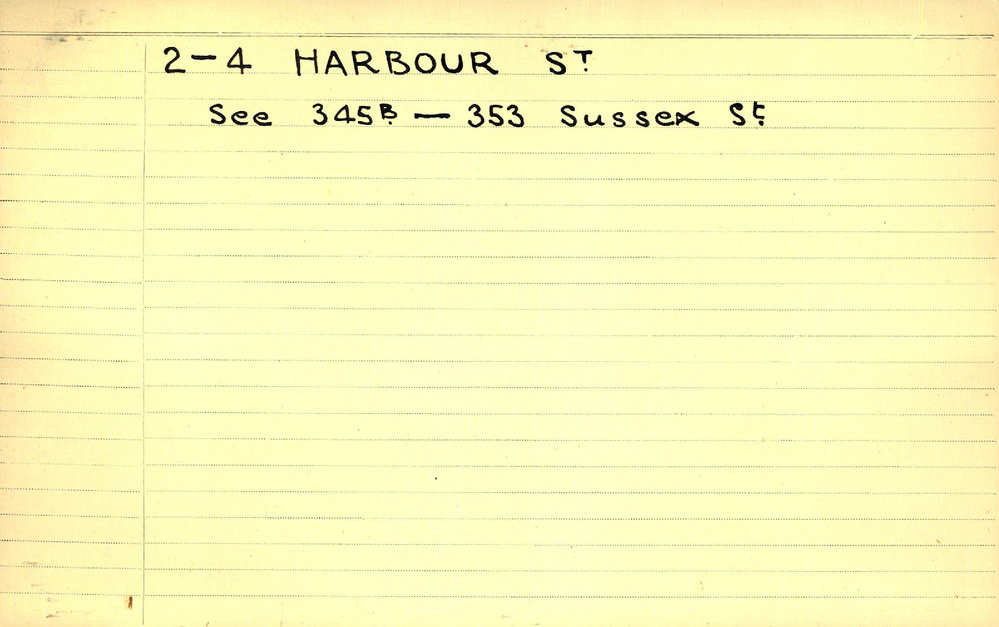 2-4 HARBOUR ST.
See 345B. — 353 Sussex St.